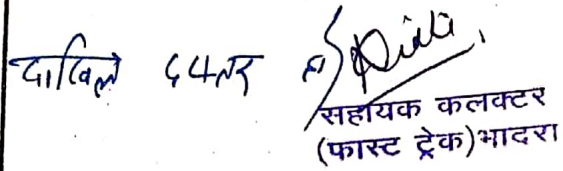 दाखिले दफ्तर हो
सहायक कलक्टर
(फास्ट ट्रेक)भादरा